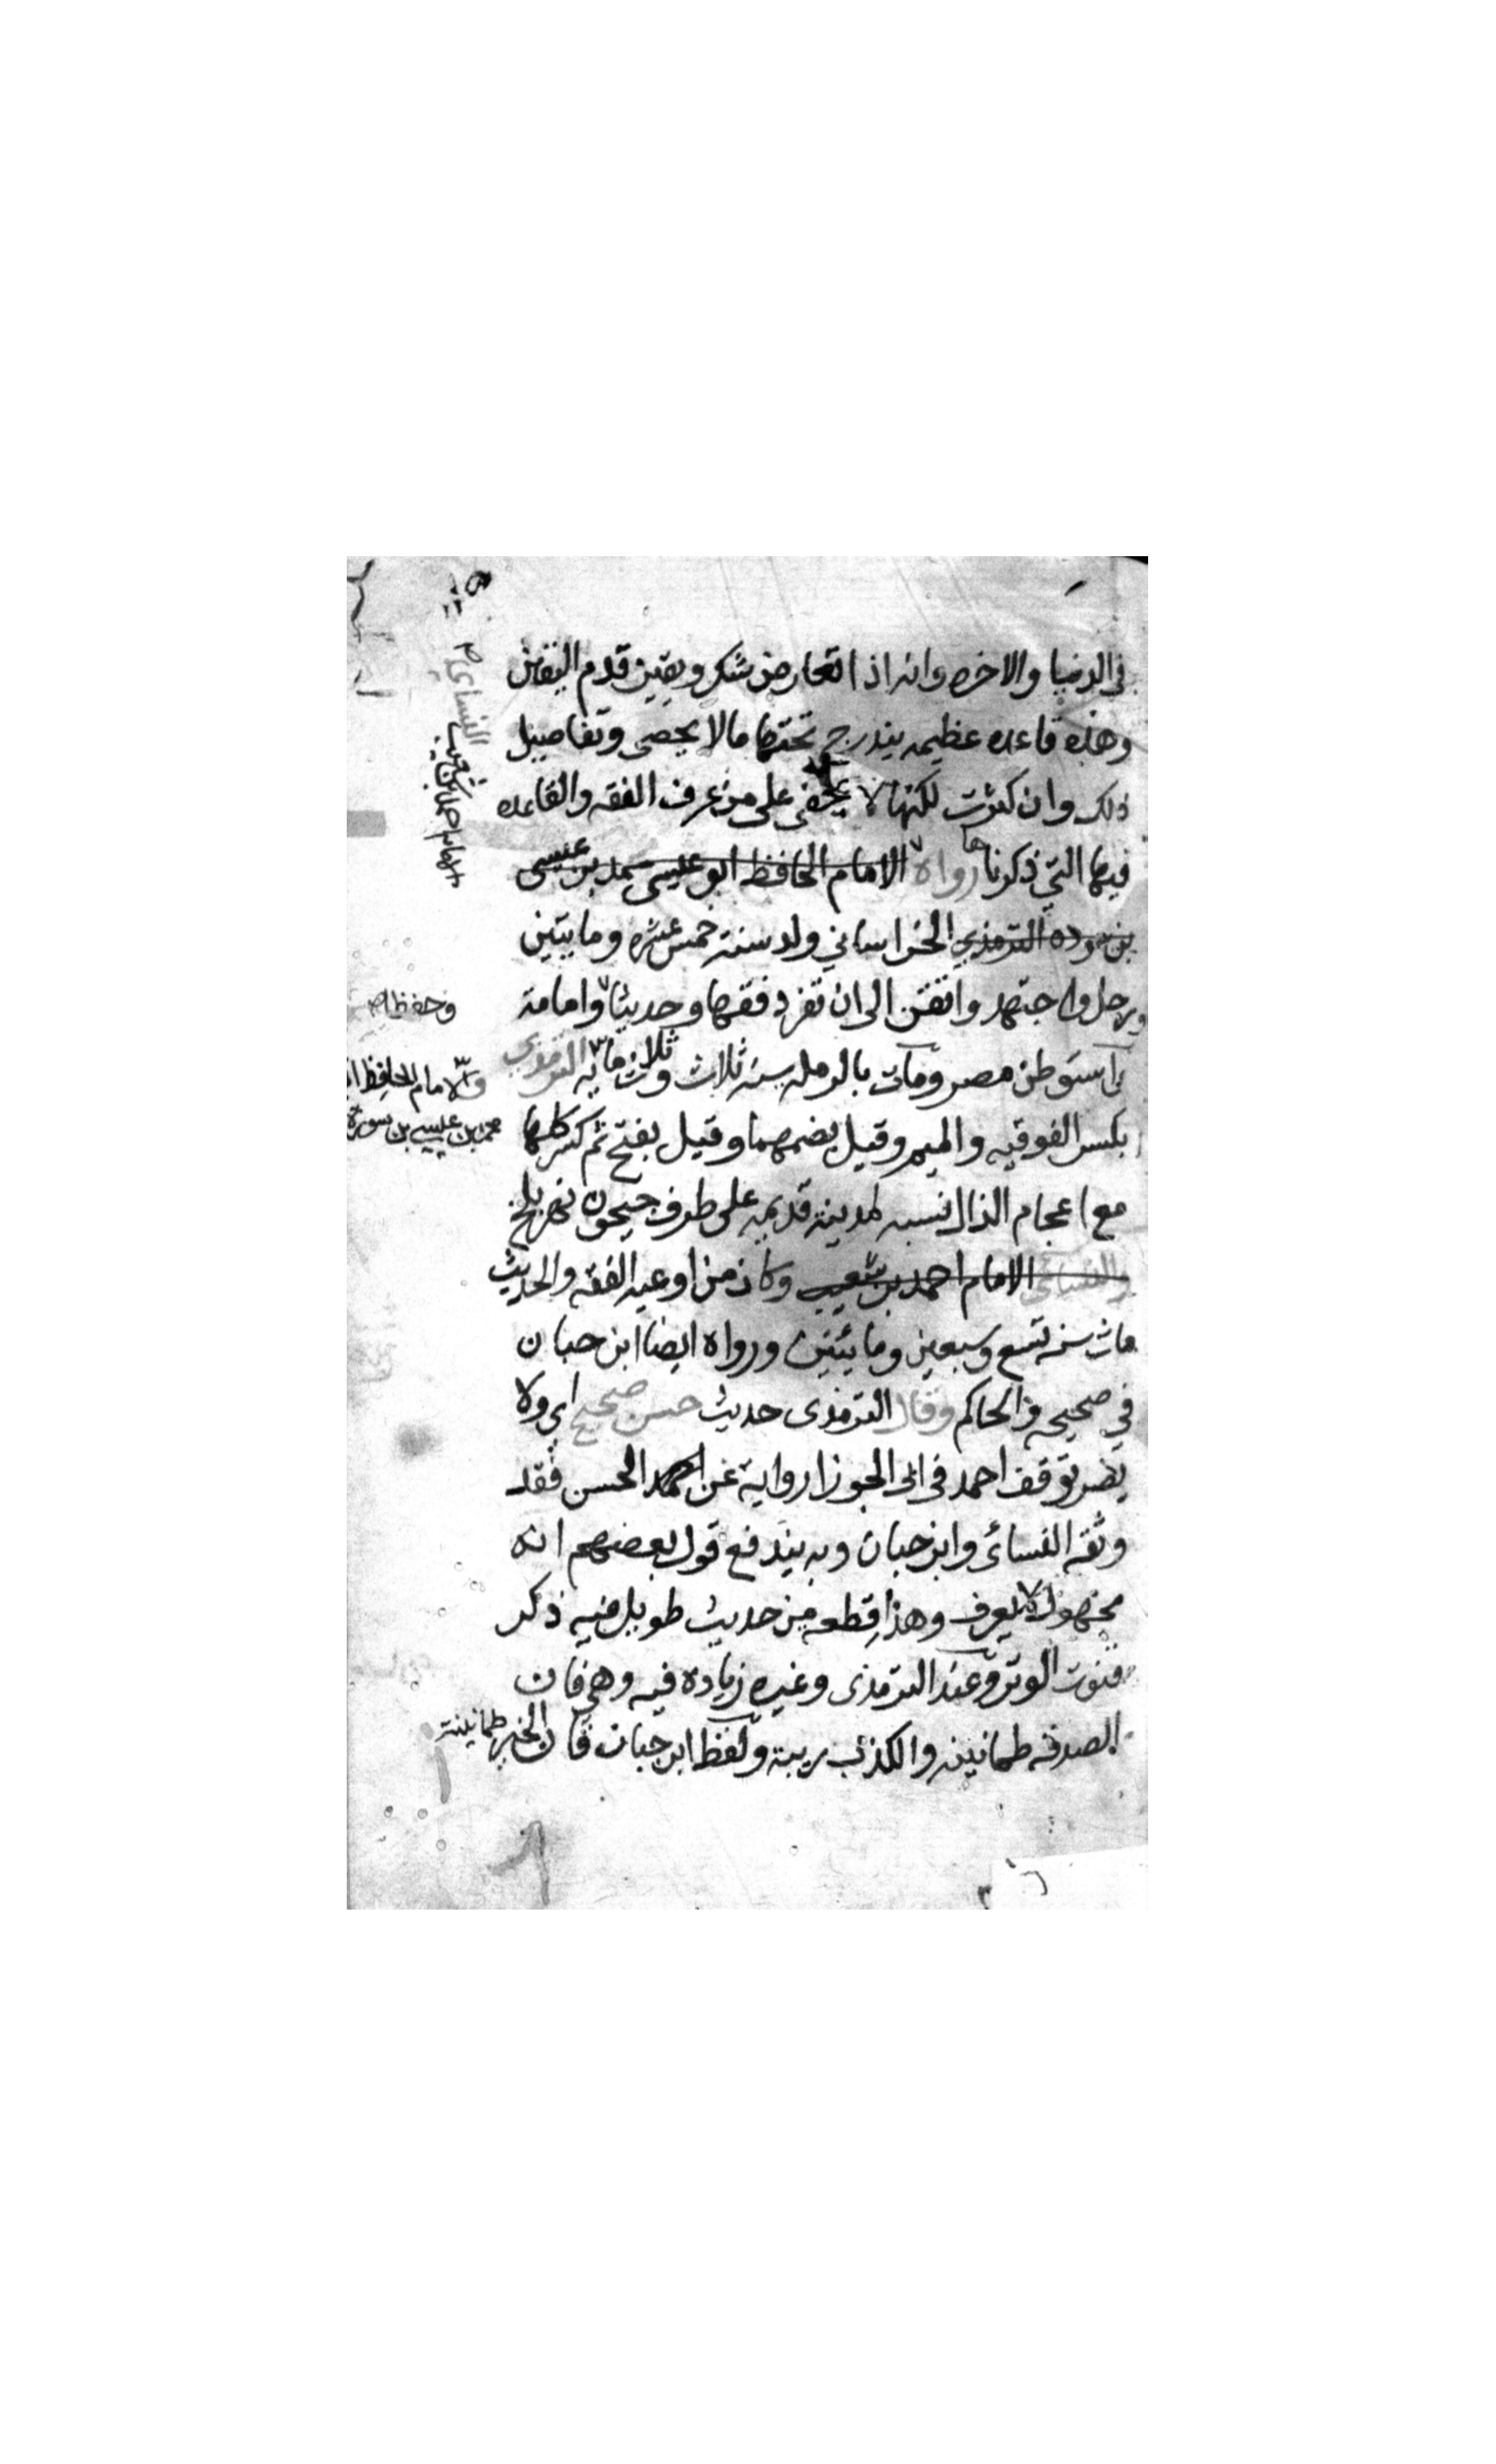 في الدنيا والاخره وانه اذا تعارض شك ويقين قدم اليقين
وهذه قاعده عظيمه يندرج تحتها مالا يحصى وتفاصيل
ذلك وان كثرت لكنها لا تخفى على من عرف الفقه والقاعده
فيها التي ذكرناها رواه الامام الحافظ ابو عيسى محمد بن عيسى
بن سوره الترمذي الخراساني ولد سنة خمس عشره ومايتين
ورحل واجتهد واتقن الى ان تفرد فقها وحديثا وامامة
استوطن مصر ومات بالرمله سنه ثلاث وثلاثمايه الترمذي
بكسر الفوقيه والميم وقيل بضمهما وقيل بفتح ثم كسر كلها
مع اعجام الذال نسبه لمدينة قديمه على طرف جيحون نهر بلخ
والنسائي الامام احمد بن شعيب وكان من اوعيه الفقه والحديث
مات سنه تسع وسبعين ومائتين ورواه ايضا ابن حبان
في صحيحه والحاكم وقال الترمذى حديث حسن صحيح اى ولا
يضر توقف احمد فى ابى الجوزا رواية عن الحسن فقد
وثقه النسائى وابن حبان وبه يندفع قول بعضهم انه
مجهول لا يعرف وهذا قطعه من حديث طويل فيه ذكر
قنوت الوتر وعند الترمذى وغيره زياده فيه وهى فان
الصدق طمانينه والكذب ريبة ولفظ ابن حبان فان الخير طمانينة
النساى
الامام احمد بن شعيب
وحفظا صح
والامام الحافظ
محمد بن عيسى بن سورة